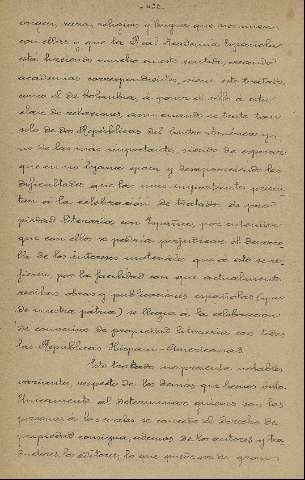 origen, raza, religión y lengua que nos unen
con ellas y que la Real Academia Española
está haciendo mucho en este sentido, creando
academias correspondientes, viene este tratado,
como el de Colombia, á poner el sello á esta
clase de relaciones, aun cuando se trata tan
solo de dos Repúblicas del Centro América y
no de las más importantes, siendo de esperar
que en no lejana época y desapareciendo las
dificultades que las más importantes presen-
tan á la celebración de tratados de pro-
piedad literaria con España, por entender
que con ellos se podría perjudicar el desarro-
llo de los intereses materiales que á esto se re-
fieren, por la facilidad con que actualmente
reciben obras y publicaciones españolas (que
de nuestra patria) se llegará á la celebración
de convenios de propiedad literaria con todas
las Repúblicas Hispano-Americanas.
Este tratado no presenta notables
variantes, respecto de los demás que hemos visto.
Unicamente al determinar quienes son las
personas á las cuales se concede el derecho de
propiedad consigna, además de los autores y tra-
ductores, los editores, lo que puede ser de gran